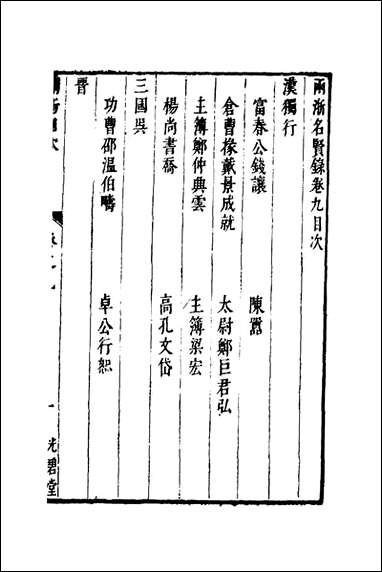 兩浙名賢錄卷九目次
漢獨行
富春公錢讓 陳囂
倉曹掾戴景成就 太尉鄭巨君弘
主簿鄭仲典雲 主簿梁宏
楊尚書喬 高孔文岱
三國吳
功曹邵溫伯疇 卓公行恕
晉
一 光碧堂